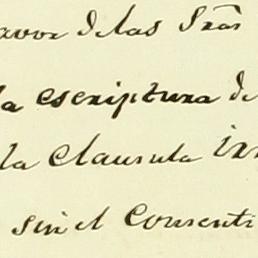 avor de las Sras
la escriptura de
la clausula irr
sin el consenti